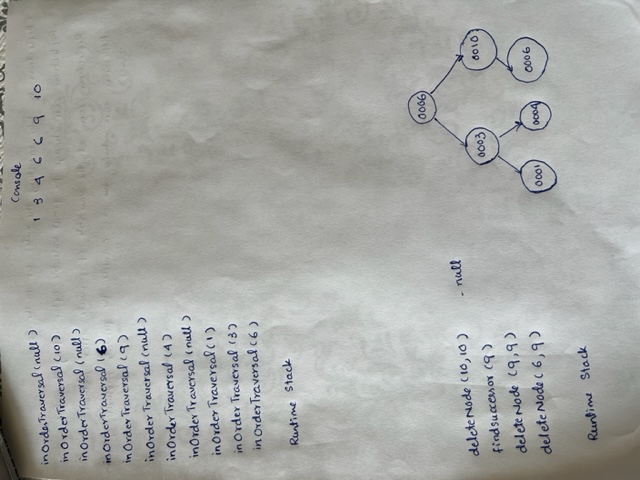 Console
1 3 4 6 6 9 10
inOrderTraversal(null)
inOrderTraversal(10)
inOrderTraversal(null)
inOrderTraversal(6)
inOrderTraversal(9)
inOrderTraversal(null)
inOrderTraversal(4)
inOrderTraversal(null)
inOrderTraversal(1)
inOrderTraversal(3)
inOrderTraversal(6)
Runtime Stack
deleteNode(10,10) - null
findsuccessor(9)
deleteNode(9,9)
deleteNode(6,9)
Runtime Stack
0006
0003 0010
0001 0004 0006